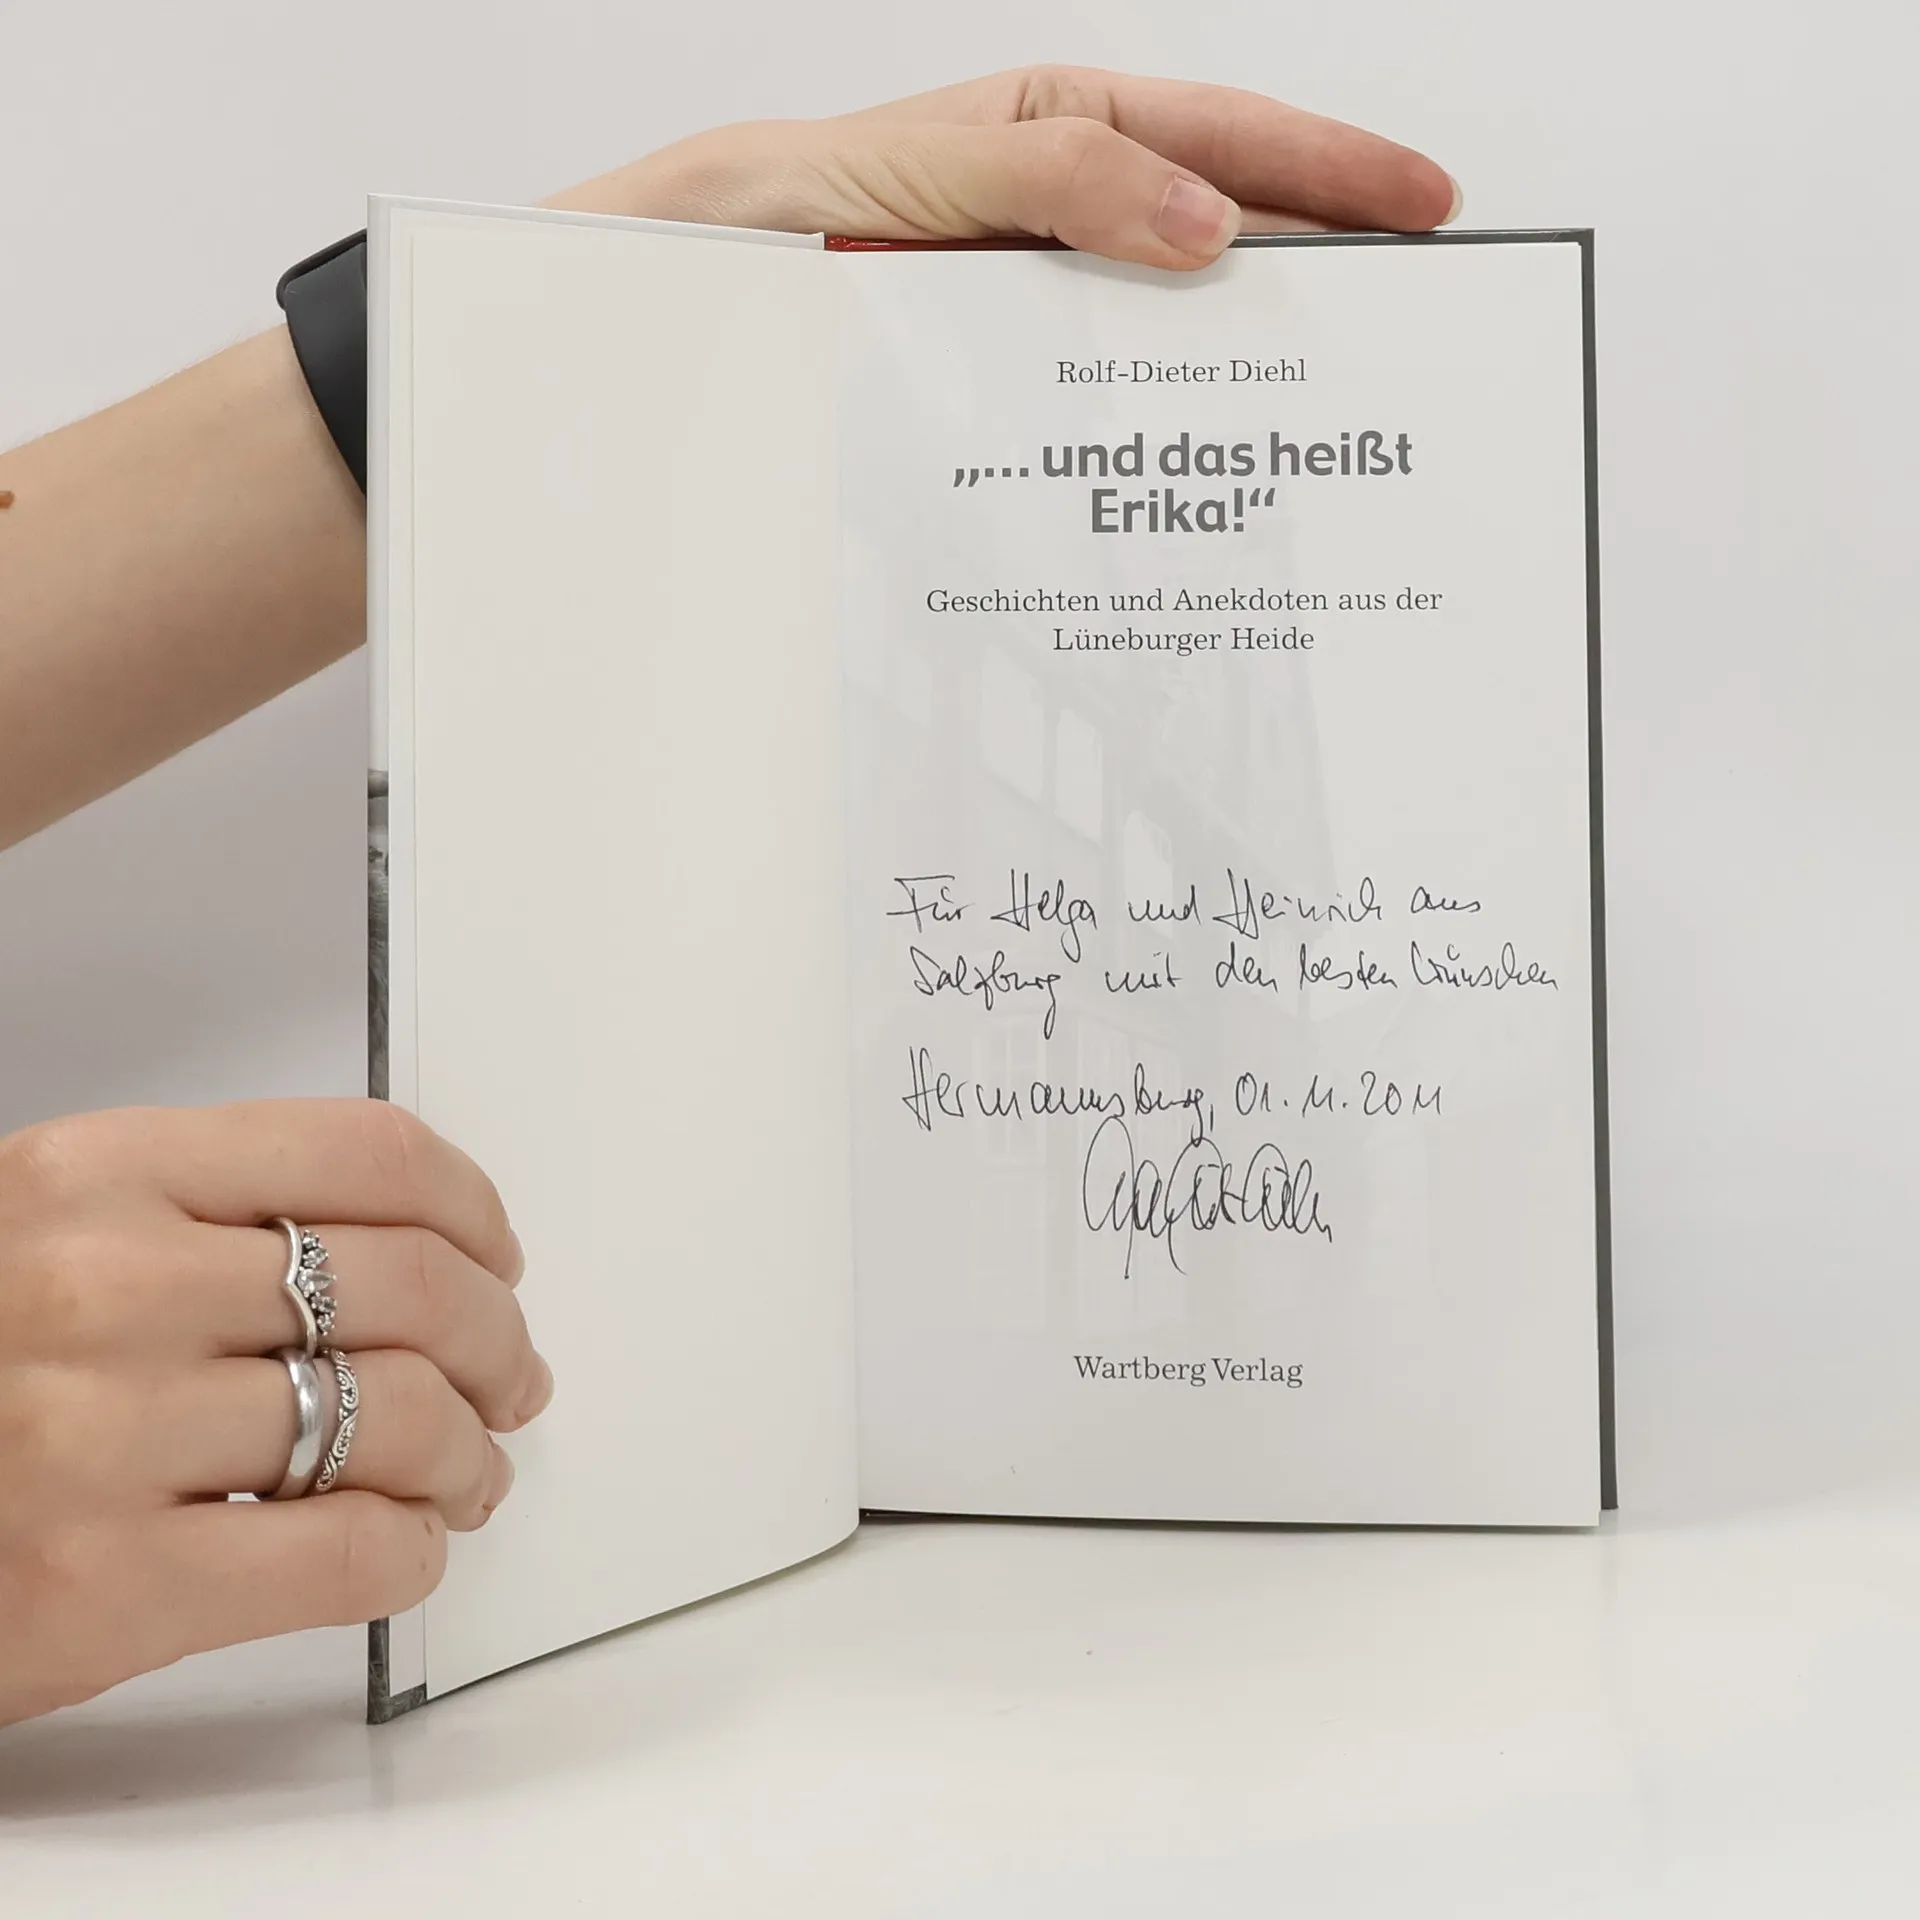 Rolf-Dieter Diehl
„... und das heißt
Erika!“
Geschichten und Anekdoten aus der
Lüneburger Heide
Für Helga und Heinrich aus
Salzburg mit den besten Wünschen
Hermannsburg, 01.11.2011
Wartberg Verlag